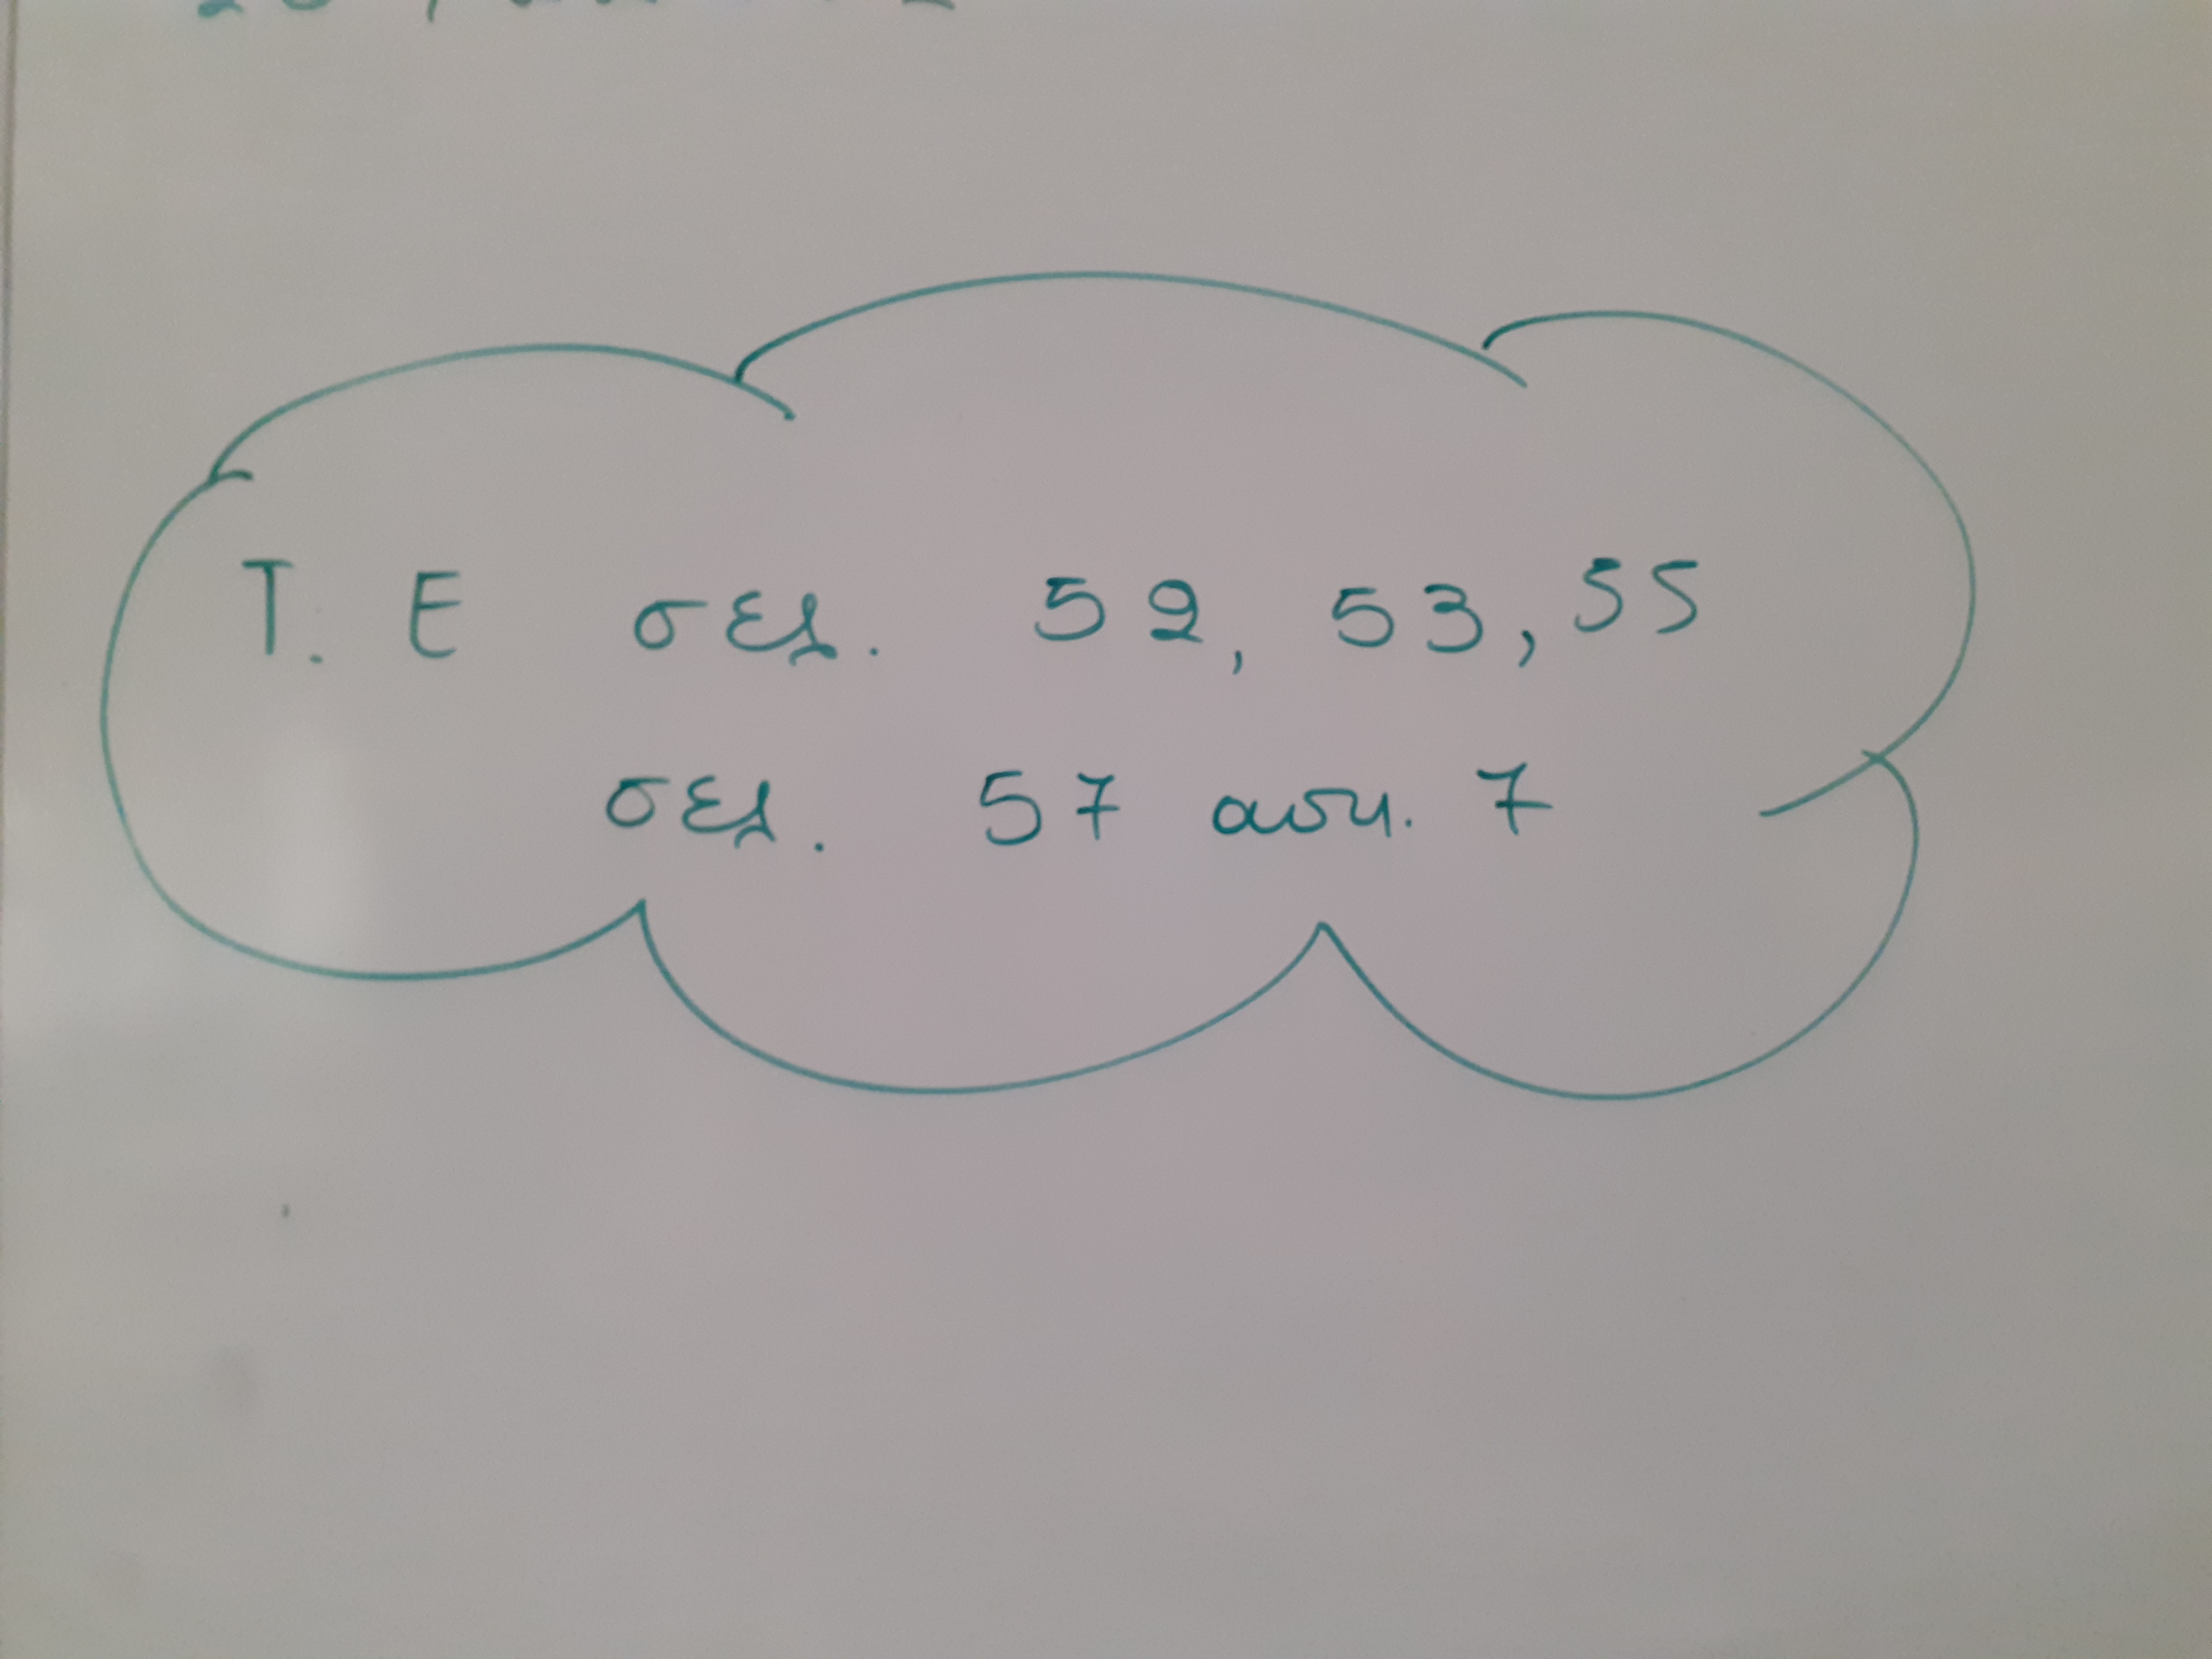 Τ. Ε σελ. 52, 53, 55
σελ. 57 ασκ. 7